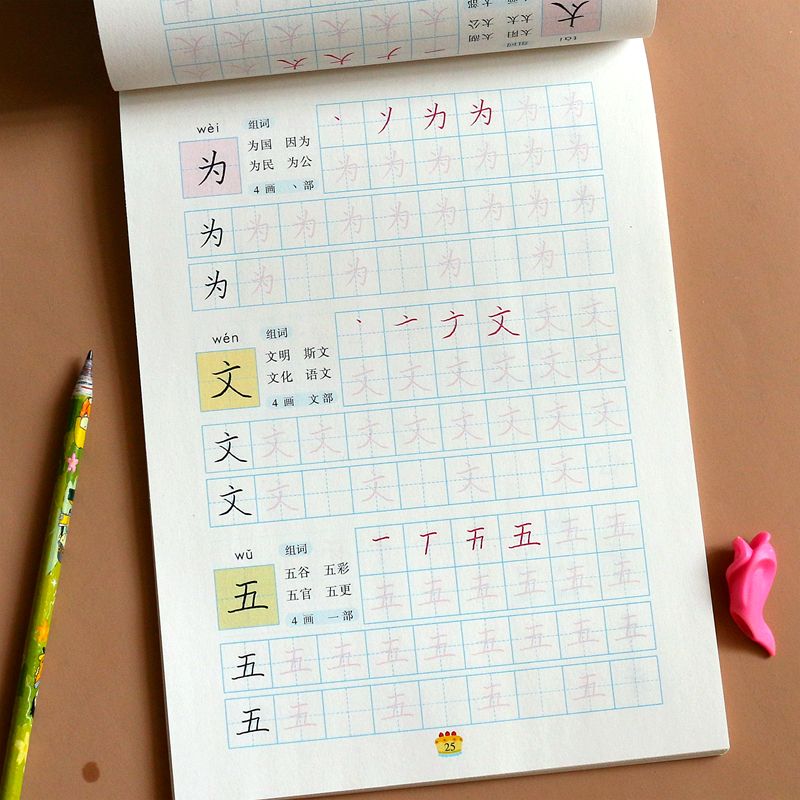 tài
组词
太
太阳 太湖
太太 太公
wèi
组词
丶 丷 为 为 为 为
为
为国 因为
为民 为公
4画 丶部
为 为 为 为 为 为
为 为 为 为 为 为 为 为 为
为 为 为 为 为
wén
组词
丶 亠 ナ 文 文 文
文
文明 斯文
文化 语文
4画 文部
文 文 文 文 文 文
文 文 文 文 文 文 文 文 文
文 文 文 文 文
wǔ
组词
一 丅 五 五 五
五
五谷 五彩
五官 五更
4画 一部
五 五 五 五 五 五
五 五 五 五 五 五 五 五 五
五 五 五 五 五
25